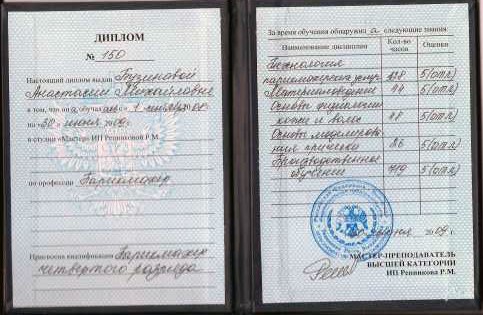 ДИПЛОМ
№ 150
Настоящий диплом выдан
Анастасии Михайловне
в том, что она обучалась с
по «30» июня 2009г.
в студии «Мастер» ИП Репникова Р.М.
по профессии Парикмахер
Присвоена квалификация Парикмахер
четвертого разряда
За время обучения обнаружила следующие знания:
Наименование дисциплин
Кол-во часов
Оценки
Технология
парикмахерских услуг 5(отл)
Материаловедение 5(отл)
Основы физиологии
кожи и волос 5(отл)
Основы моделирова
ния прически 5(отл)
Производственное
обучение 5(отл)
2009 г.
МАСТЕР-ПРЕПОДАВАТЕЛЬ
ВЫСШЕЙ КАТЕГОРИИ
ИП Репникова Р.М.